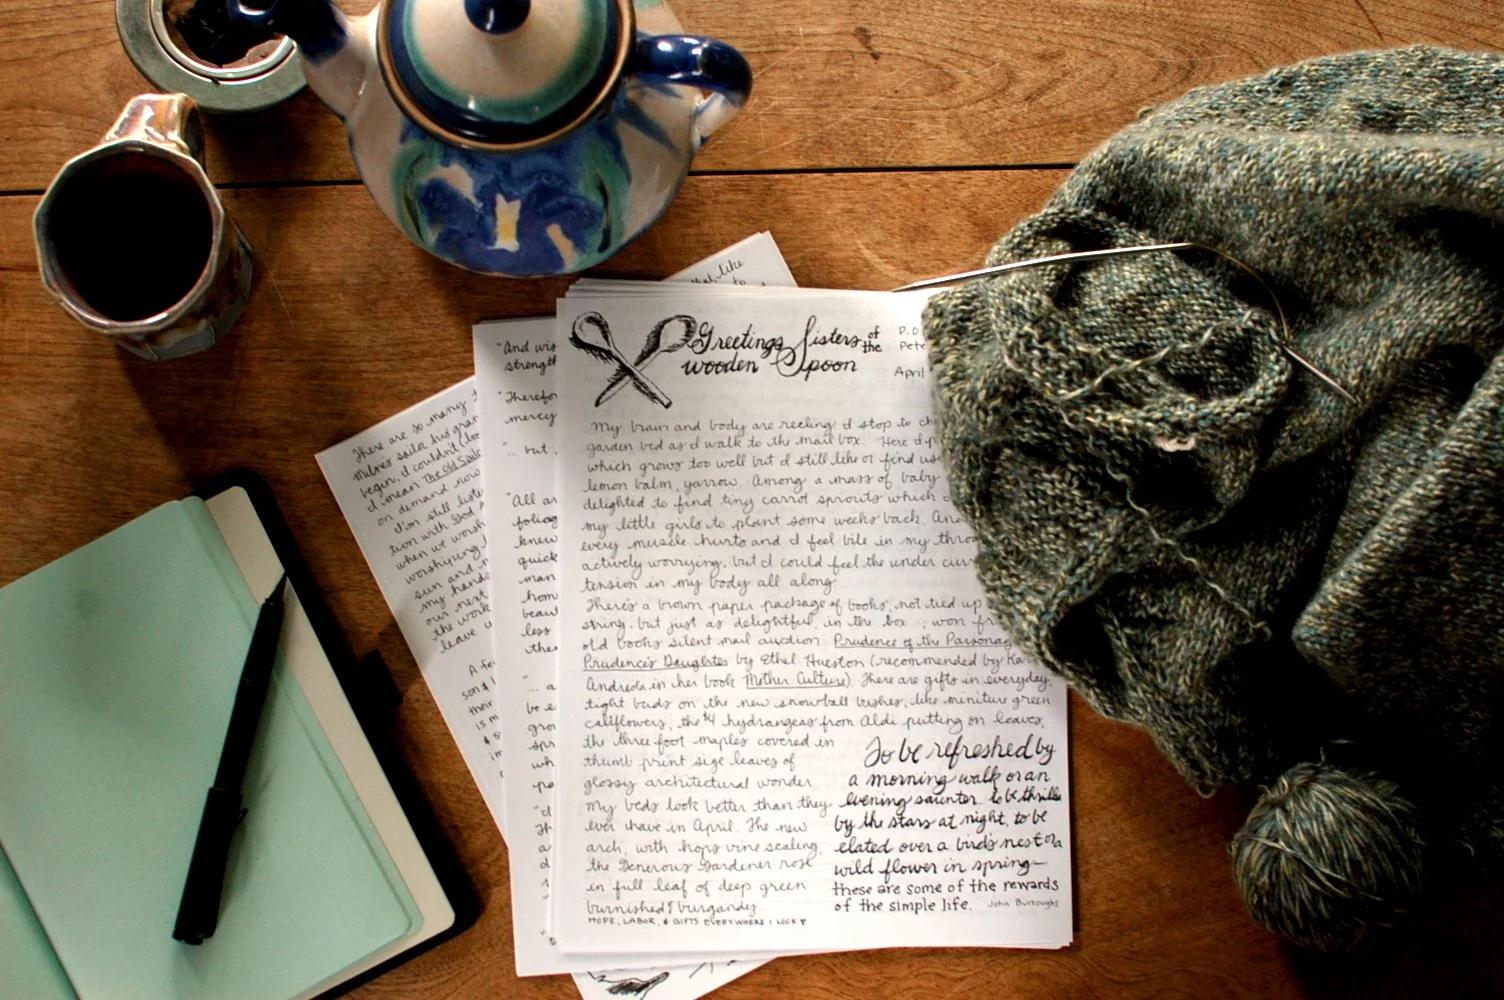 that like
to
Greetings Sisters of the
wooden Spoon
P.O
Pete
April
My brain and body are reeling. I stop to ch
garden bed as I walk to the mail box. Here I p
which grows too well but I still like or find us
lemon balm, yarrow. Among a mass of baby
delighted to find tiny carrot sprouts which
my little girls to plant some weeks back. An
every muscle hurts and I feel bile in my thro
actively worrying, but I could feel the under cur
tension in my body all along.
There's a brown paper package of books, not tied up
string, but just as delightful, in the box; won fr
old books silent mail auction. Prudence of the Parsonag
Prudence's Daughter by Ethel Hueston (recommended by Ka
Andreola in her book Mother Culture). There are gifts in everyday:
tight buds on the new snowball bushes, like miniture green
califlowers, the $4 hydrangeas from Aldi putting on leaves,
the three foot maples covered in
thumb print size leaves of
glossy architectural wonder.
My beds look better than they
ever have in April. The new
arch, with hops vine scaling,
the Generous Gardener rose
in full leaf of deep green
burnished & burgandy.
HOPE, LABOR, & GIFTS EVERYWHERE I LOOK ♥
To be refreshed by
a morning walk or an
evening saunter, to be thrilled
by the stars at night, to be
elated over a birds nest or a
wild flower in spring—
these are some of the rewards
of the simple life. John Burroughs
"And wis
strength
"Therefor
mercy
"... but
"All ar
foliag
knew
quick
man
hom
beau
less
thes
"... a
be e
gro
spr
wh
"d
Th
a
d
There are so many
Milne's sailor his gran
begin, I couldn't (don
I mean The Old Sailo
on demand now
I'm still liste
tion with God
when we worsh
worshiping
sun and
my hands
our nest
the work
leave u
A fe
son &
their
is m
& s